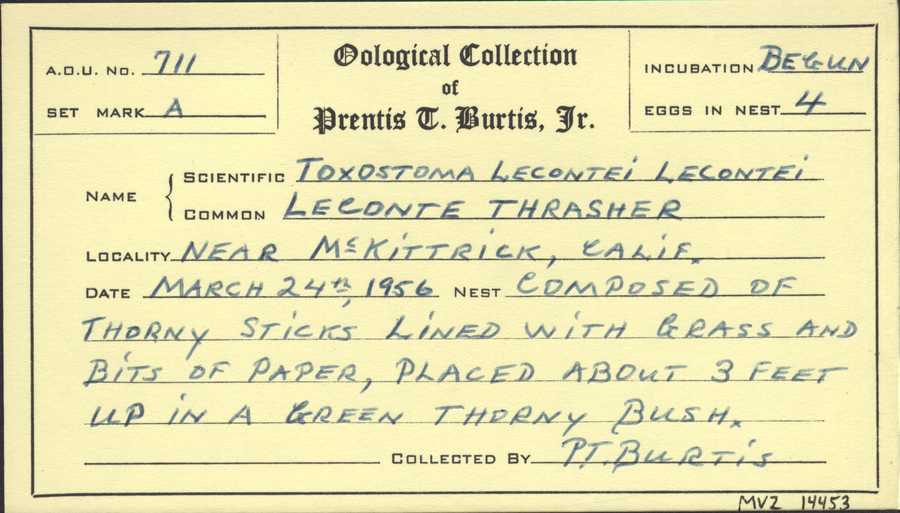 A.O.U. No. 711
Set Mark A
Oological Collection
of
Prentis T. Burtis, Jr.
Incubation Begun
Eggs in Nest 4
Name { Scientific Toxostoma Lecontei Lecontei
Common LeConte Thrasher
Locality Near McKittrick, Calif.
Date March 24th, 1956 Nest Composed of
Thorny Sticks Lined with Grass and
Bits of Paper, Placed About 3 Feet
Up in a Green Thorny Bush.
Collected By P.T. Burtis
MVZ 14453